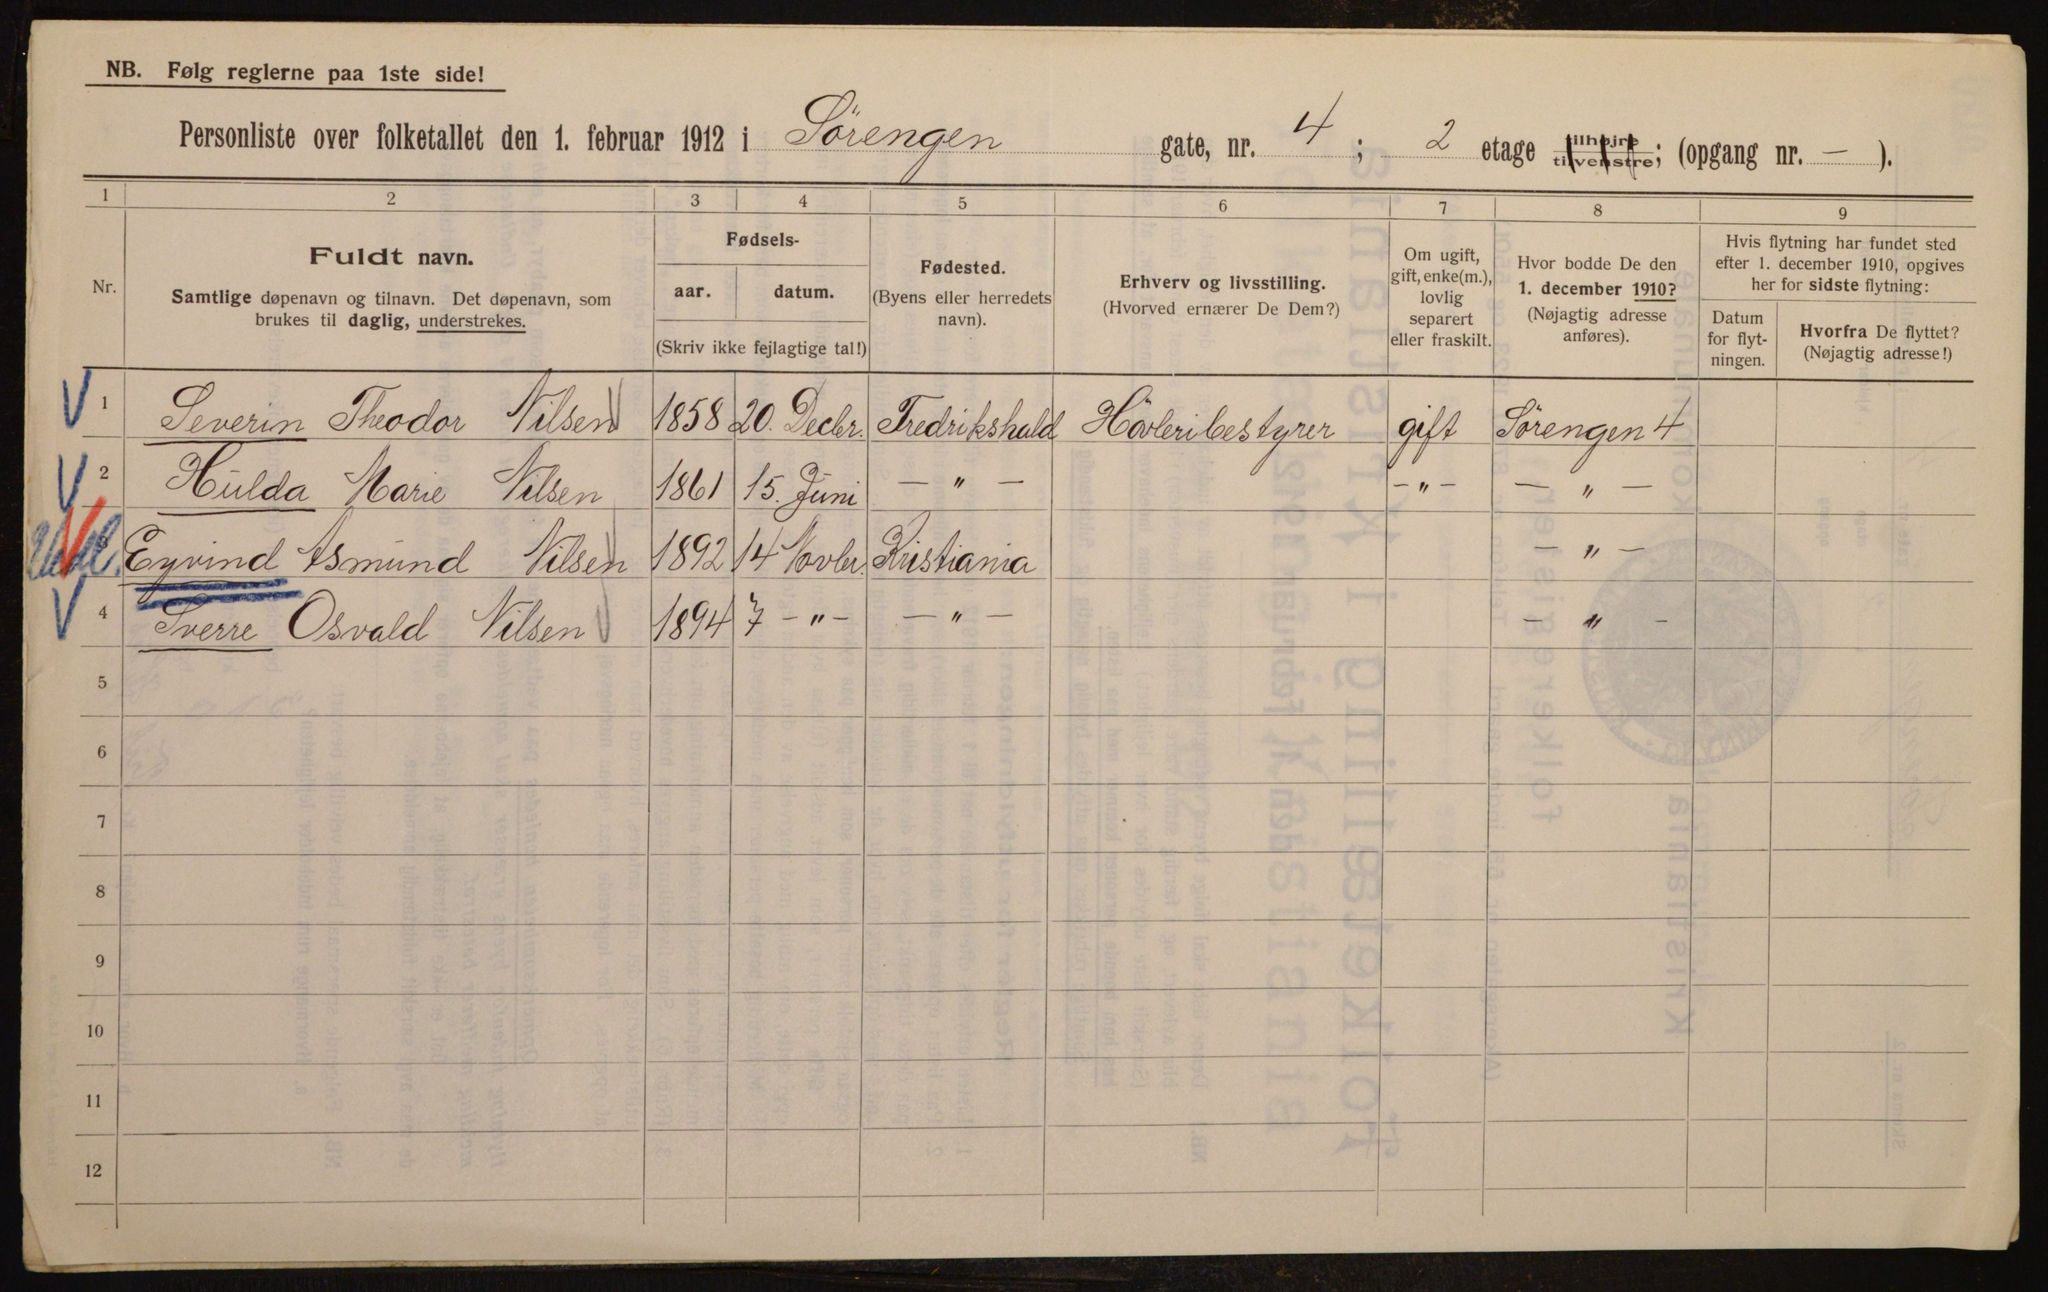 NB. Følg reglerne paa 1ste side!
Personliste over folketallet den 1. februar 1912 i Sörengen gate, nr. 4 ; 2 etage tilhøjre tilvenstre; (opgang nr. — ).
1 2 3 4 5 6 7 8 9
Nr.
Fuldt navn.
Samtlige døpenavn og tilnavn. Det døpenavn, som
brukes til daglig, understrekes.
Fødsels-
aar. datum.
(Skriv ikke fejlagtige tal!)
Fødested.
(Byens eller herredets
navn).
Erhverv og livsstilling.
(Hvorved ernærer De Dem?)
Om ugift,
gift, enke(m.),
lovlig
separert
eller fraskilt.
Hvor bodde De den
1. december 1910?
(Nøjagtig adresse
anføres).
Hvis flytning har fundet sted
efter 1. december 1910, opgives
her for sidste flytning:
Datum
for flyt-
ningen.
Hvorfra De flyttet?
(Nøjagtig adresse!)
1 Severin Theodor Nilsen 1858 20. Decbr. Fredrikshald Hövleribestyrer gift Sörengen 4
2 Hulda Marie Nilsen 1861 15. Juni — " — — " — — " —
3 Eyvind Asmund Nilsen 1892 14 Novbr. Kristiania — " —
4 Sverre Osvald Nilsen 1894 7 — " — — " — — " —
5
6
7
8
9
10
11
12